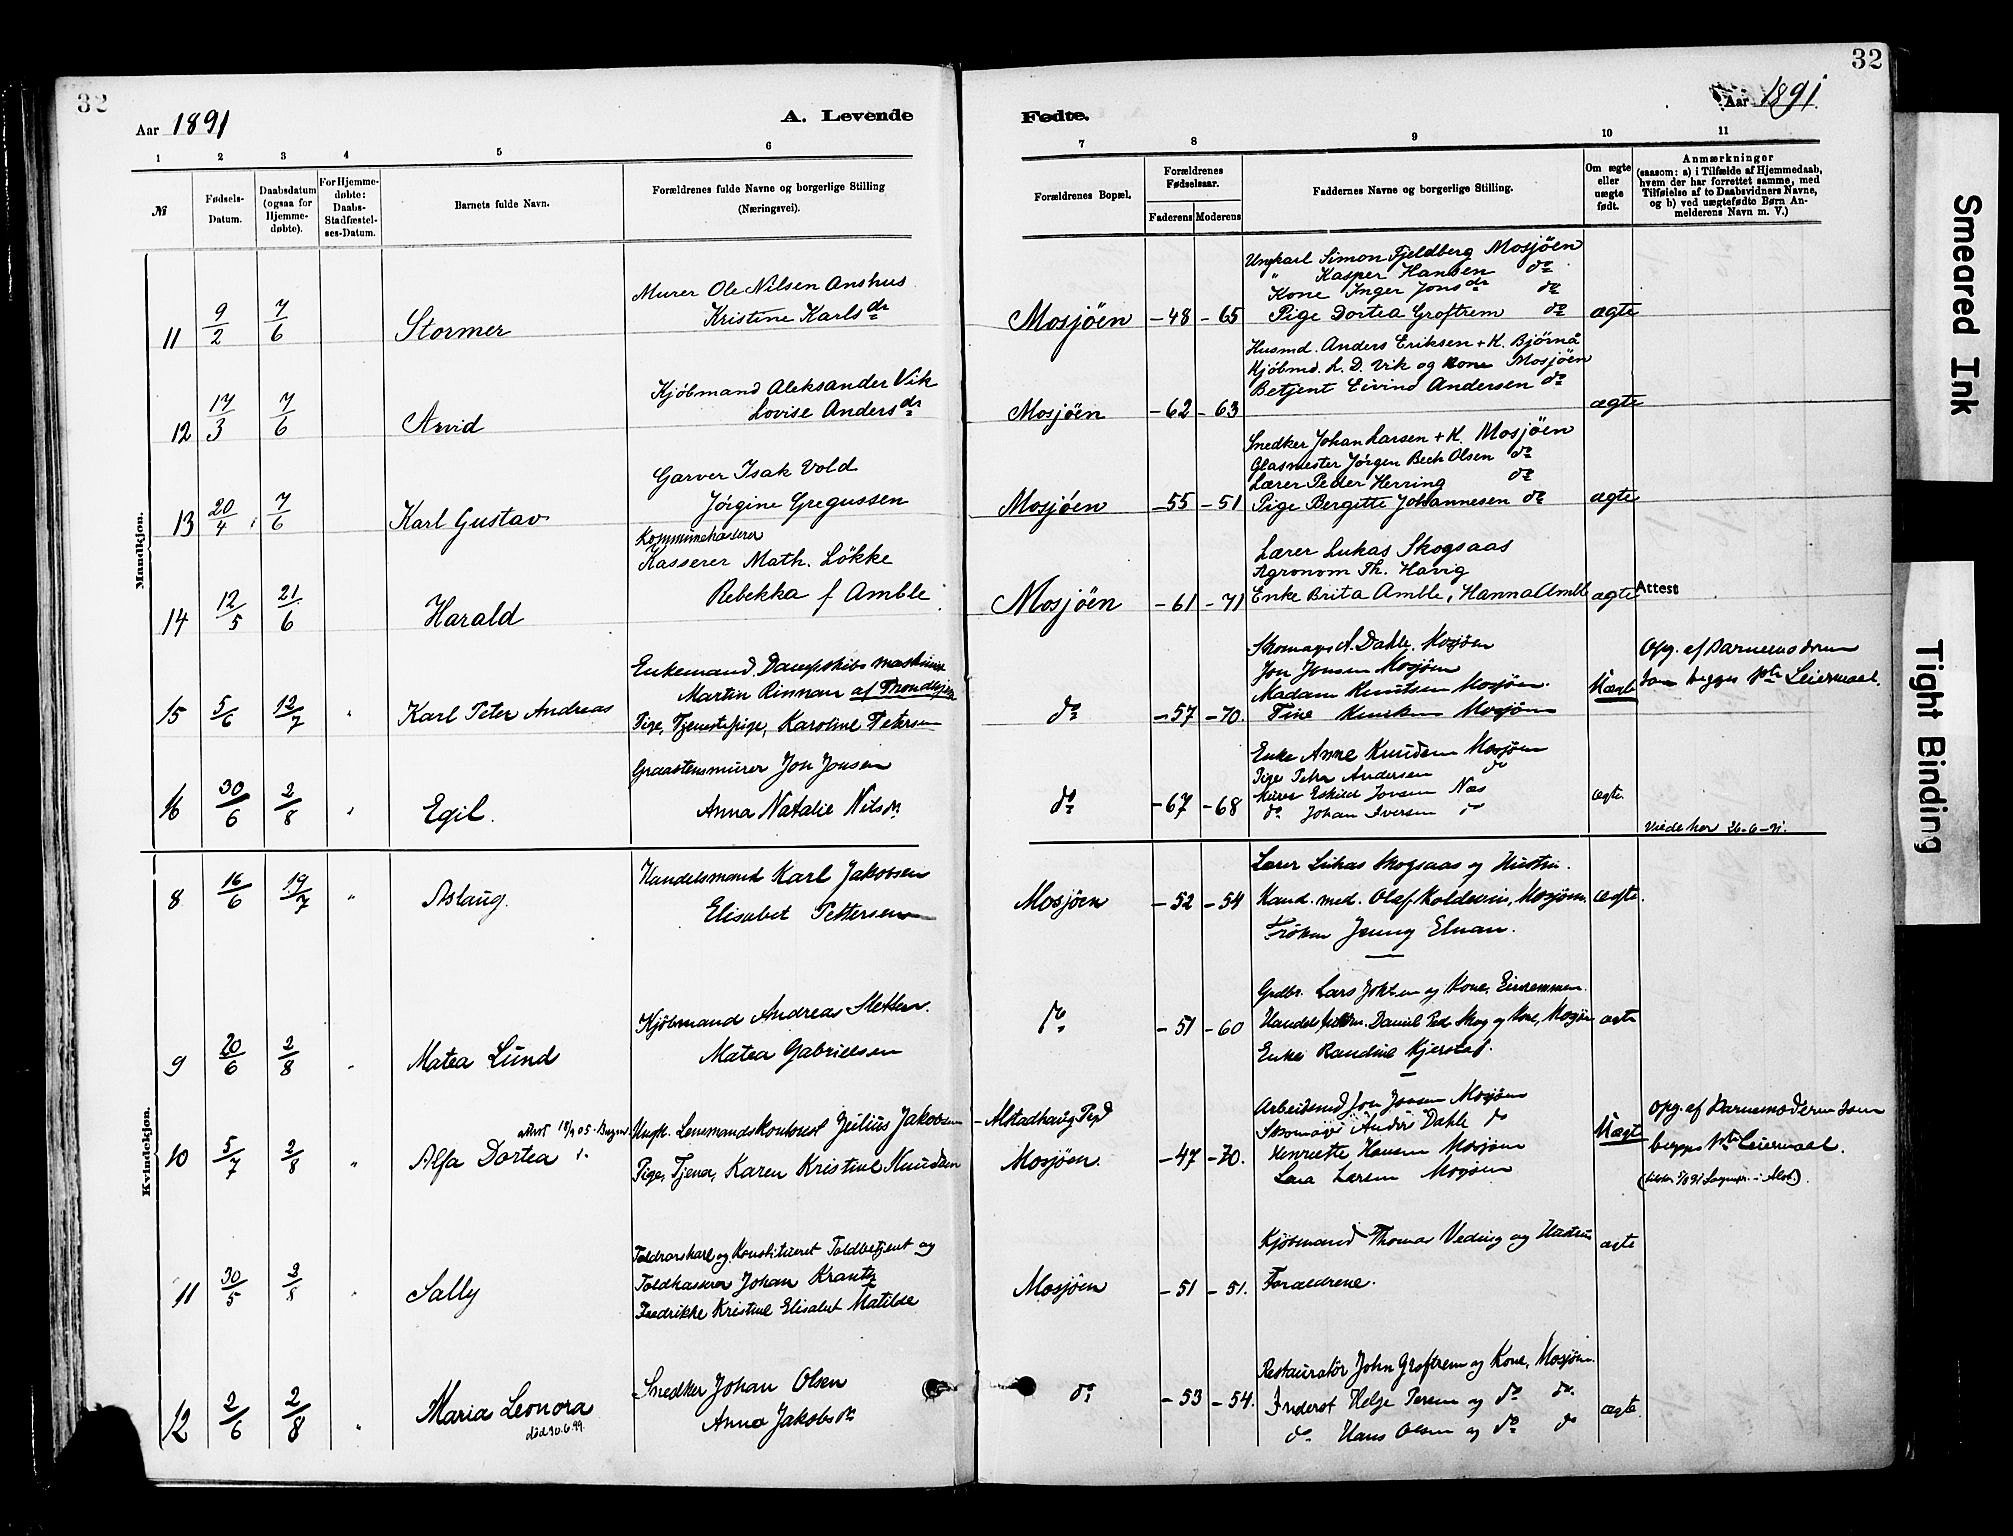 32
Aar 1891
A. Levende
1 2 3 4 5 6
№
Fødsels-Datum.
Daabsdatum (ogsaa for Hjemme-døbte).
For Hjemme-døbte: Daabs-Stadfæstel-ses-Datum.
Barnets fulde Navn.
Forældrenes fulde Navne og borgerlige Stilling
(Næringsvei).
Mandkjøn.
11 9/2 7/6 Stormer
Murer Ole Nilsen Anshus
Kristine Karlsdr
12 17/3 7/6 Arvid
Kjøbmand Aleksander Vik
Lovise Andersdr
13 20/4 7/6 Karl Gustav
Garver Isak Vold
Jørgine Gregussen
14 12/5 21/6 Harald
Kommunekasserer
Kasserer Math. Løkke
Rebekka f Amble
15 5/6 12/7 " Karl Peter Andreas
Enkemand, Dampskibsmaskinist
Martin Rinnan af Trondhjem
Pige, Tjenestepige, Karoline Petersen
16 30/6 2/8 " Egil.
Graastensmurer Jon Jonsen
Anna Natalie Nilsdr
Kvindekjøn.
8 16/6 19/7 " Aslaug.
Handelsmand Karl Jakobsen
Elisabet Pettersen
9 20/6 2/8 " Matea Lund
Kjøbmand Andreas
Matea Gabrielsen
10 5/7 2/8 " Alfa Dortea
Ungk. Lensmandskontorist Julius Jakobsen
Pige, Tjener, Karen Kristine Knudsen
11 30/5 2/8 " Sally
Toldrorskarl og Konstitueret Toldbetjent og
Toldkasserer Johan Krantz
Fredrikke Kristine Elisabet Matilde
12 2/6 2/8 " Maria Leonora
død 30.6.99.
Snedker Johan Olsen
Anna Jakobsdr
32
Fødte.
Aar 1891.
7 8 9 10 11
Forældrenes Bopæl.
Forældrenes Fødselsaar.
Faderens Moderens
Faddernes Navne og borgerlige Stilling
Om ægte eller uægte født.
Anmærkninger
(saasom: a) i Tilfælde af Hjemmedaab,
hvem der har forrettet samme, med
Tilføielse af to Daabsvidners Navne,
og b) ved uægtefødte Børn An-
melderens Navn m. V.)
Ungkarl Simon Fjeldberg Mosjøen
" Kasper Hansen do
Kone Inger Jonsdr do
Mosjøen -48 -65 Pige Dortea Groftrem do ægte
Husmd. Anders Eriksen + K. Bjørnå
Kjøbmd. L. D. Vik og Kone Mosjøen
Betjent Eivind Andersen do
Mosjøen -62 -63 ægte
Snedker Johan Larsen + K. Mosjøen
Glasmester Jørgen Bech Olsen do
Lærer Peder Herring do
Mosjøen -55 -51 Pige Bergitte Johannesen do ægte
Lærer Lukas Skogsaas
Agronom Th. Havig
Mosjøen -61 -71 Enke Brita Amble, Hanna Amble ægte Attest
A. Dahle, Mosjøen
Jon Jonsen Mosjøen
Madam Knutsen Mosjøen.
do -57 -70. Tine Mosjøen Uægte
Opg. af Barnemoderen
som begges 1ste Leiermaal.
Enke Anne Knudsen Mosjøen
Pige Petra Andersen do
Murer Eskild Jonsen Næs
do -67 -68 do Johan Iversen do ægte.
Viede her 26-6-91.
Lærer Lukas Skogsaas og Hustru.
Mosjøen -52 -54 Kand. med. Olaf Coldevin, Mosjøen. ægte.
Frøken Jenny Elnan.
Grdbr. Lars og Kone,
do -51 -60 Daniel Ped. Skog og Kone, Mosjøen ægte
Enke Randine Kjerstad.
Alstadhaug Pgd
Arbeidsmd Jon Jonsen Mosjøen
Andr. Dahle do
Mosjøen. -47 -70. Henriette Hansen Mosjøen Uægte
Larsen Mosjøen
Opg. af Barnemoderen som
begges 1ste Leiermaal.
Kjøbmand Thomas Veding og Hustru ægte
Mosjøen -51 -51. Forældrene.
Restauratør John Groftrem og Kone, Mosjøen.
do -53 -54. Inderst Helge og do do. ægte.
do Hans Olsen og do do
Smeared Ink
Tight Binding